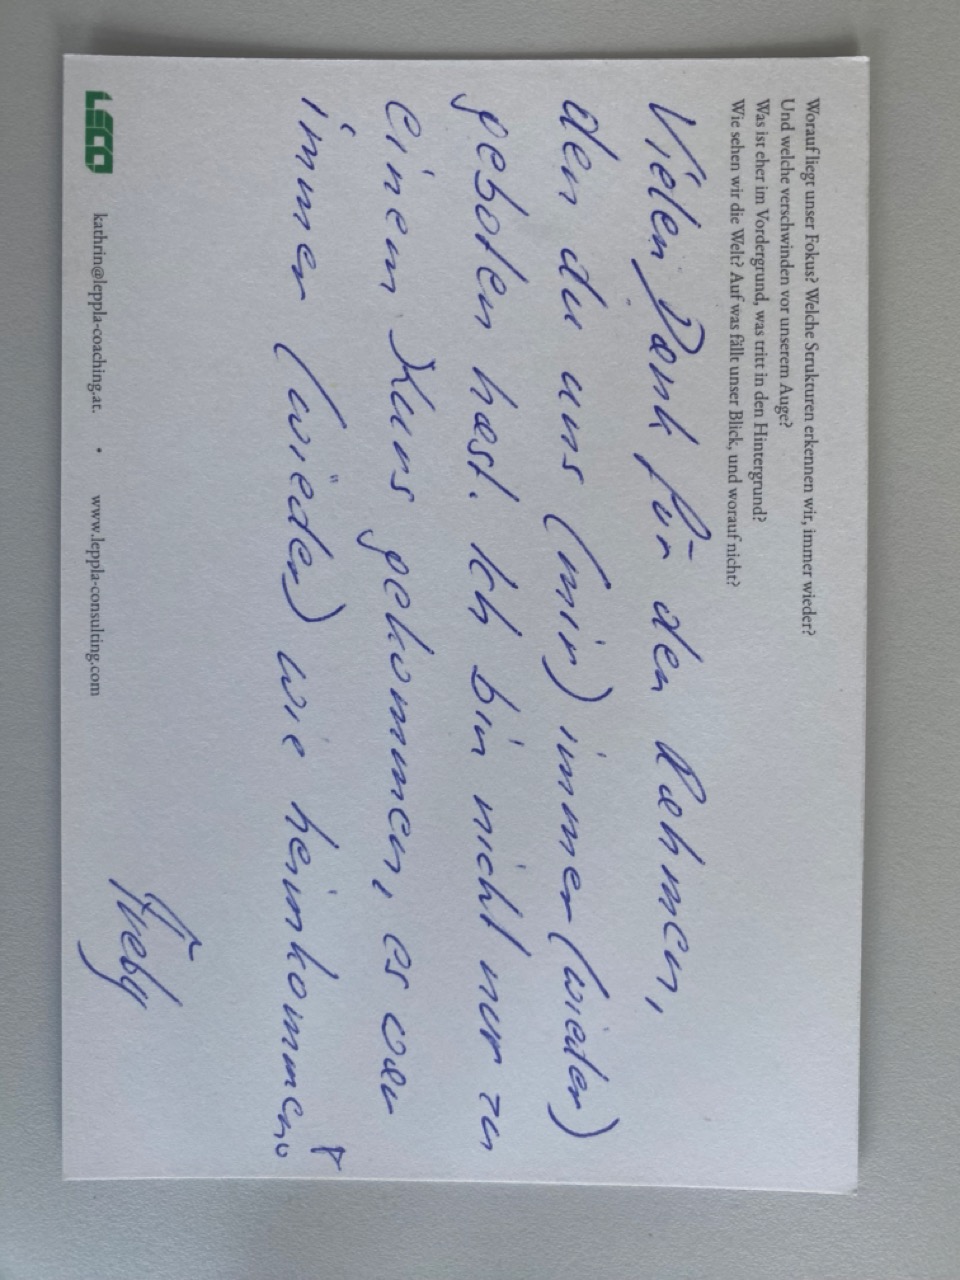 Worauf liegt unser Fokus? Welche Strukturen erkennen wir, immer wieder?
Und welche verschwinden vor unserem Auge?
Was ist eher im Vordergrund, was tritt in den Hintergrund?
Wie sehen wir die Welt? Auf was fällt unser Blick, und worauf nicht?
Vielen Dank für den Rahmen,
den du uns (mir) immer (wieder)
geboten hast. Ich bin nicht nur zu
einem Kurs gekommen, es war
immer (wieder) wie heimkommen!
LECO kathrin@leppla-coaching.at. • www.leppla-consulting.com